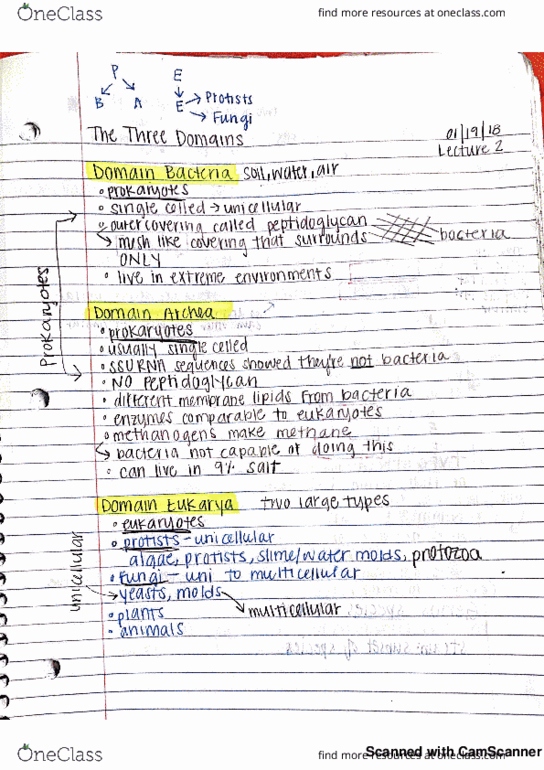 OneClass
find more resources at oneclass.com
P E
B A E → Protists
→ Fungi
The Three Domains
01/19/18
Lecture 2
Domain Bacteria soil, water, air
• prokaryotes
• single celled → unicellular
• outer covering called peptidoglycan
↳ mesh like covering that surrounds bacteria
ONLY
• live in extreme environments
Prokaryotes
Domain Archea
• prokaryotes
• usually single celled
• SSURNA sequences showed they're not bacteria
• NO Peptidoglycan
• different membrane lipids from bacteria
• enzymes comparable to eukaryotes
• methanogens make methane
↳ bacteria not capable of doing this
• can live in 9% salt
Domain Eukarya two large types
• eukaryotes
• protists - unicellular
algae, protists, slime/water molds, protozoa
• fungi - uni to multicellular
unicellular → yeasts, molds → multicellular
• plants
• animals
OneClass
find more resources at oneclass.com
Scanned with CamScanner